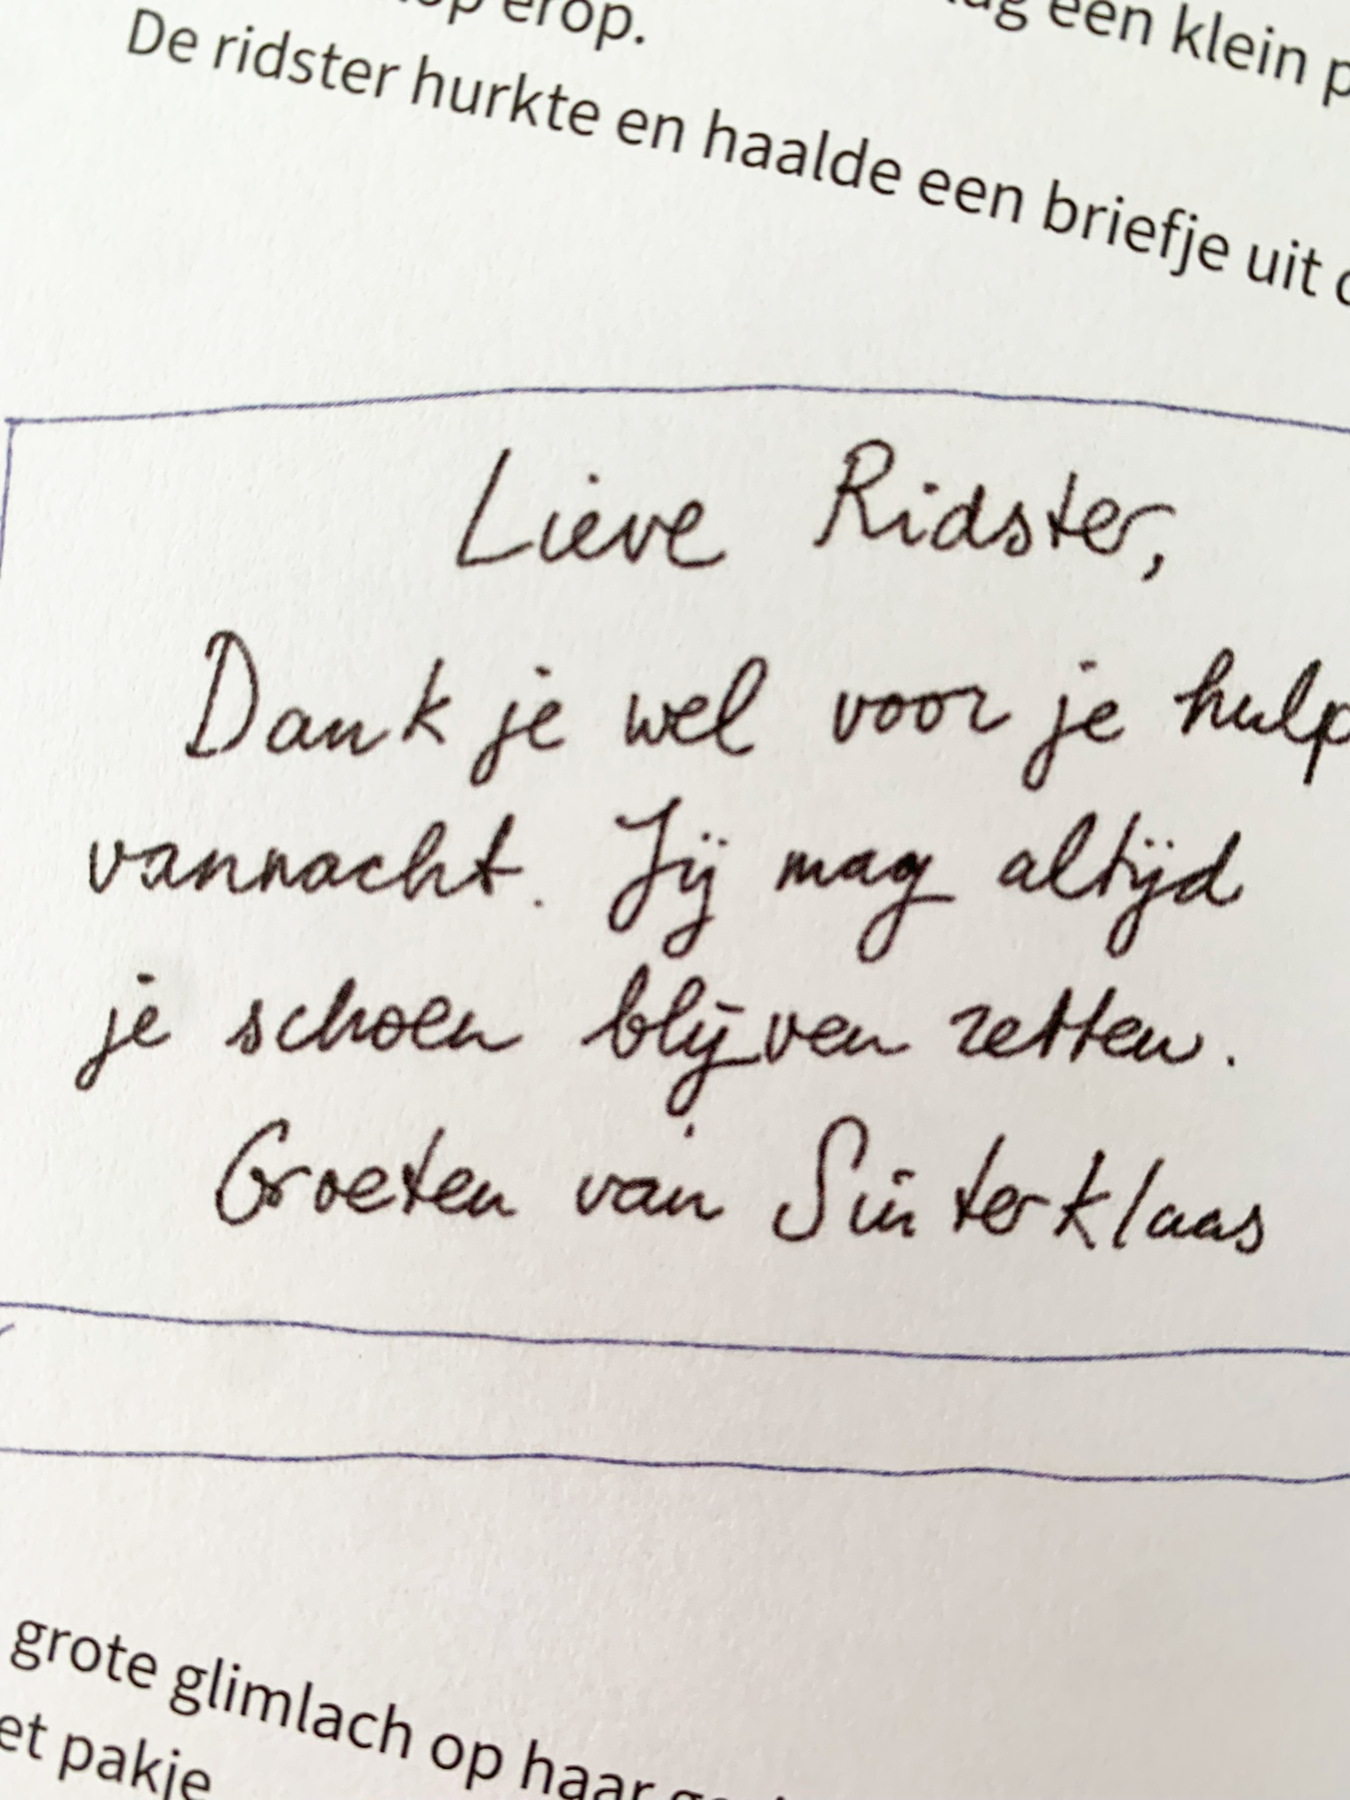 erop.
een klein
De ridster hurkte en haalde een briefje uit
Lieve Ridster,
Dank je wel voor je hulp
vannacht. Jij mag altijd
je schoen blijven zetten.
Groeten van Sinterklaas
grote glimlach op haar
pakje